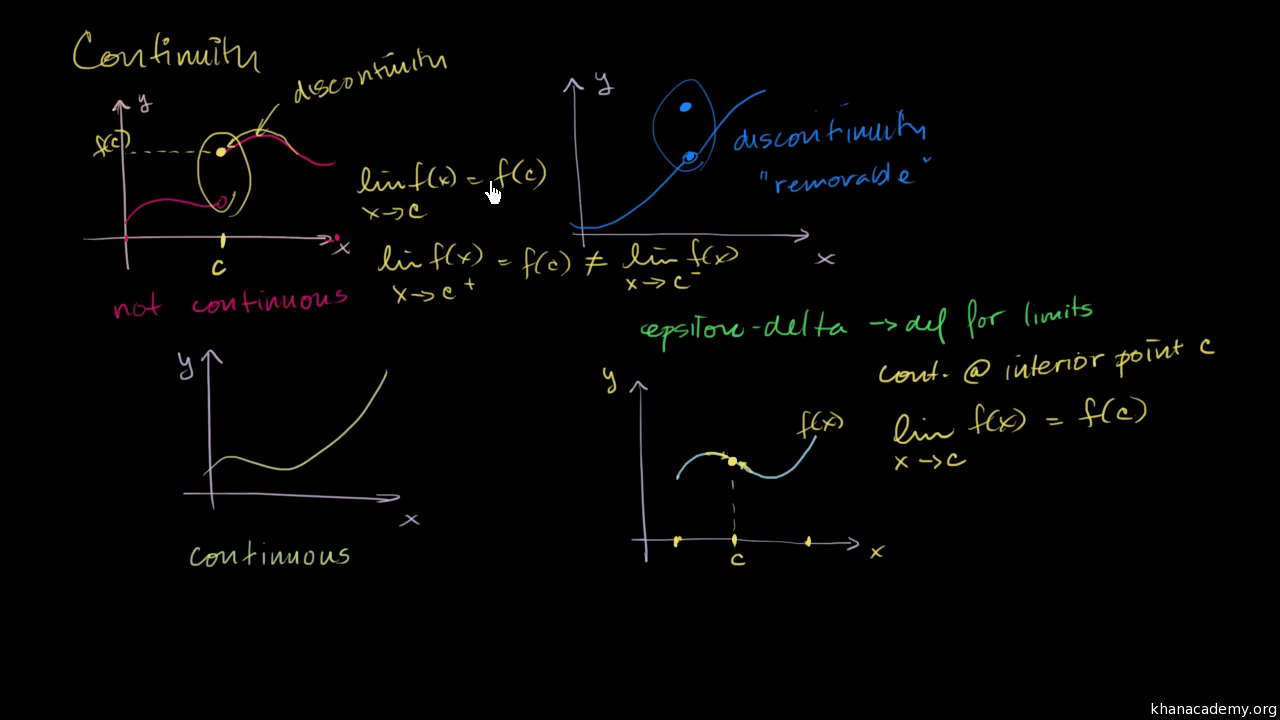 Continuity
discontinuity
y
f(c)
x
c
not continuous
lim f(x) = f(c)
x→c
lim f(x) = f(c) ≠ lim f(x)
x→c⁺ x→c⁻
y
discontinuity
"removable"
x
epsilon-delta → def for limits
cont. @ interior point c
lim f(x) = f(c)
x→c
y
x
continuous
y
f(x)
c
x
khanacademy.org